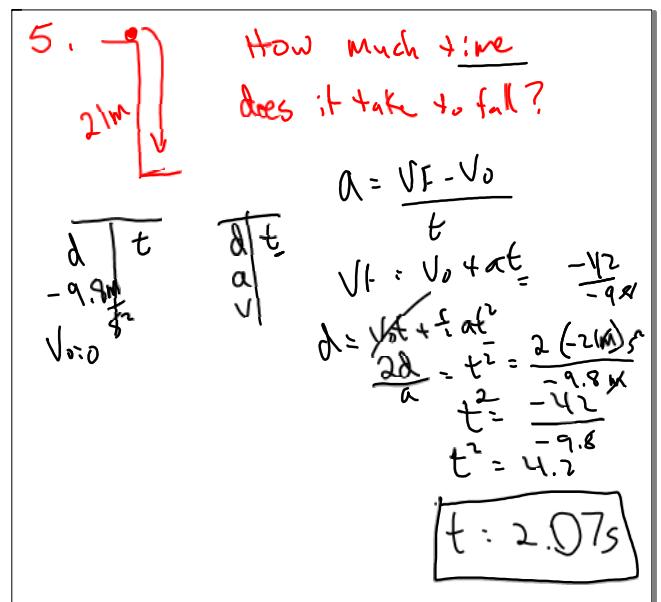 5.
How much time
does it take to fall?
21m
a = VF - V0 / t
d | t
-9.8 m/s²
V0 = 0
d | t
a
v
Vf = V0 + at
-42 / -9.8
d = V0t + ½ at²
2d / a = t² = 2(-21m)s² / -9.8 m
t² = -42 / -9.8
t² = 4.2
t = 2.07s